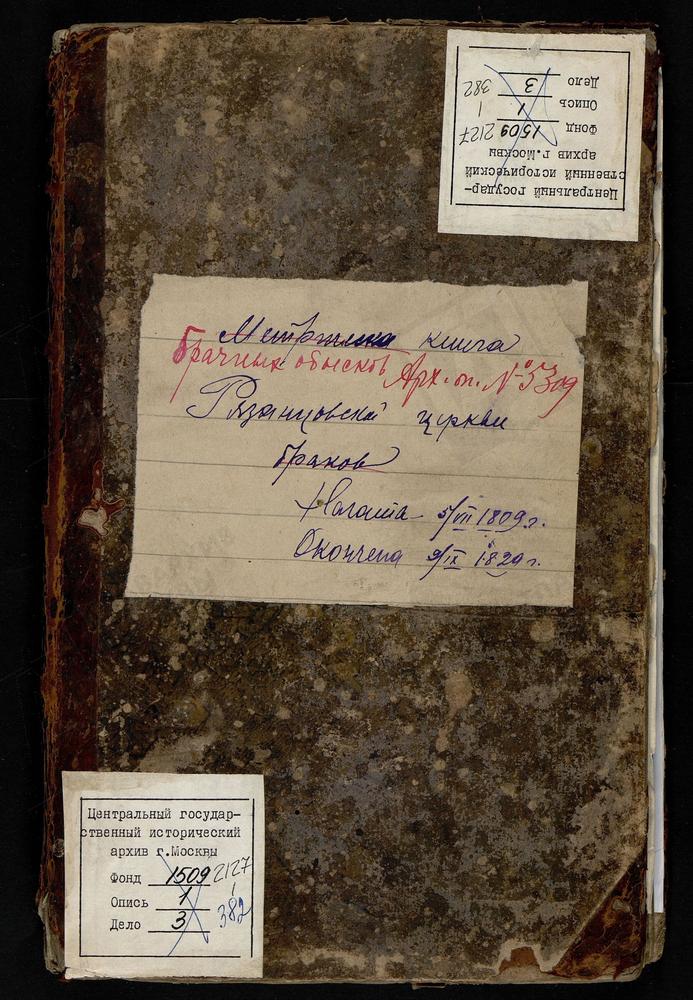 Центральный государ-
ственный исторический
архив г.Москвы
Фонд 1509 2127
Опись 1 1
Дело 3 382
Метрическа книга
Брачных обысков Арх. оп. № 5309
Рязанцовской церкви
браков
Начата 5/VII 1809 г.
Окончена 9/IX 1820 г.
Центральный государ-
ственный исторический
архив г.Москвы
Фонд 1509 2127
Опись 1 1
Дело 3 382